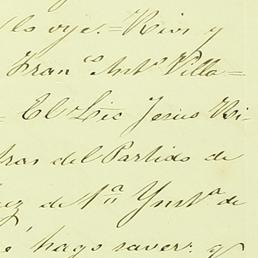 lo oye.=Rios y
Fran.co Ant.o Villa=
= El Lic Jesus Ri-
tras del Partido de
ez de 1.a Ynst.a de
é hago saver: q